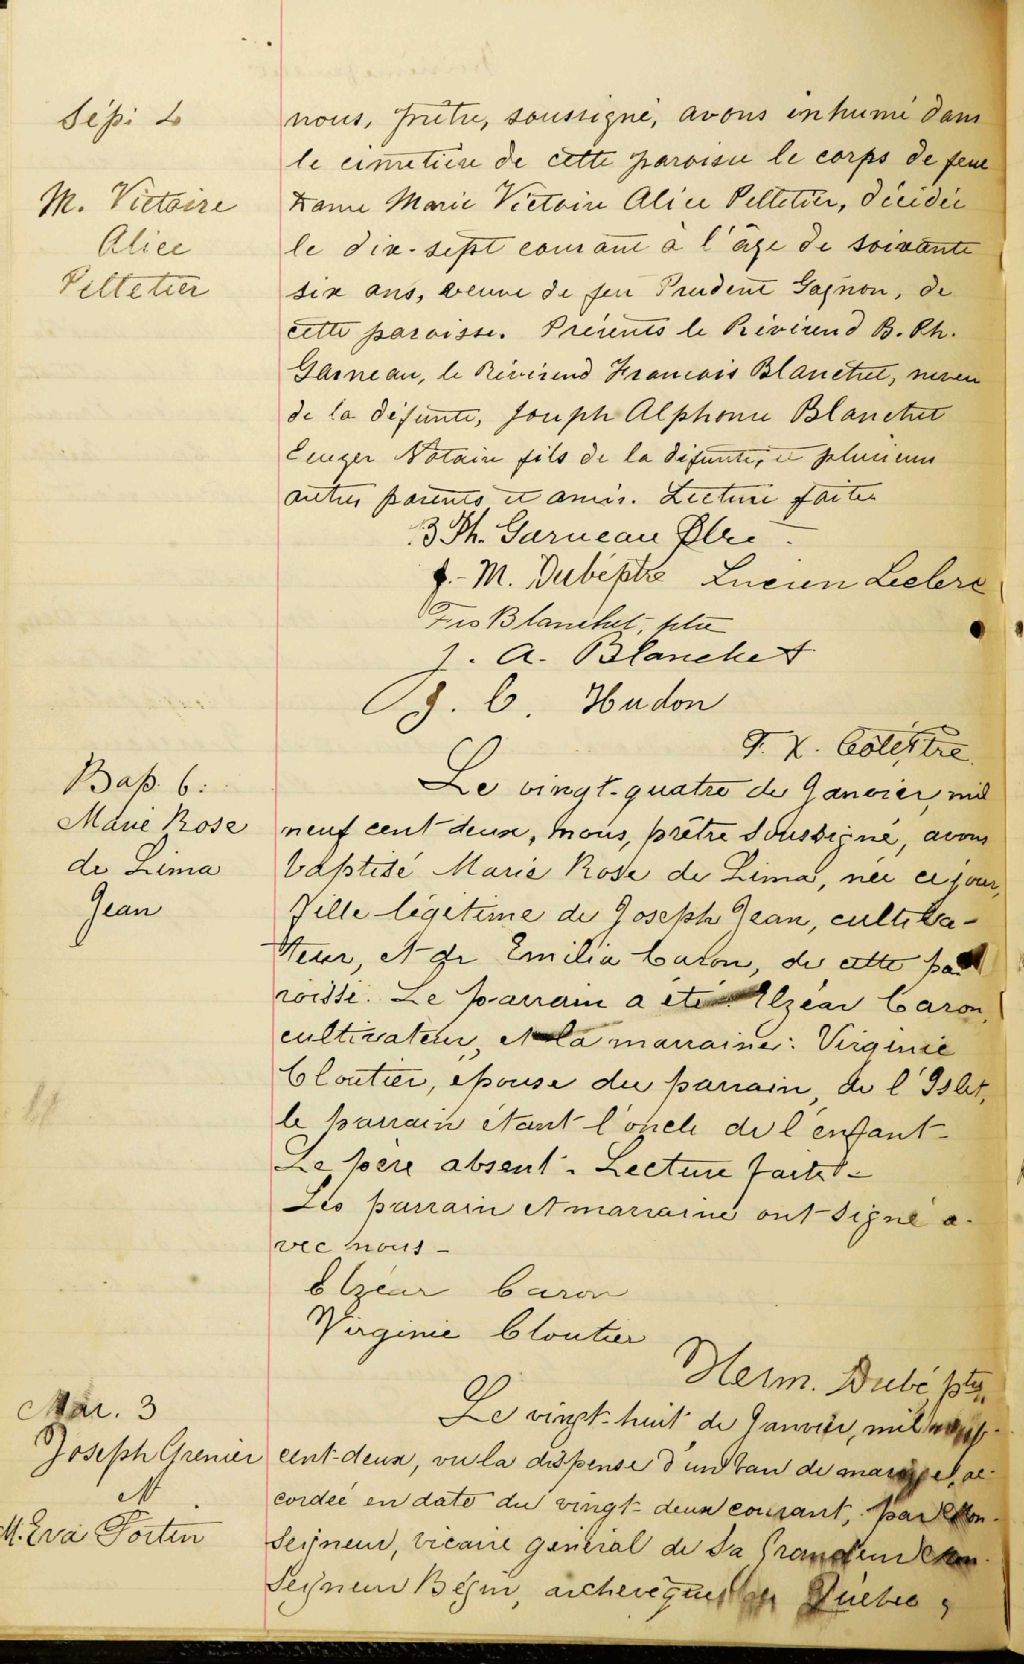 Sépi 4
M. Victoire
Alice
Pelletier
nous, prêtre, soussigné, avons inhumé dans
le cimetière de cette paroisse le corps de feue
Dame Marie Victoire Alice Pelletier, décédée
le dix-sept courant à l'âge de soixante
six ans, veuve de feu Prudent Gagnon, de
cette paroisse. Présents le Révérend B. Ph.
Garneau, le Révérend Francois Blanchet, neveu
de la défunte, Joseph Alphonse Blanchet
Notaire fils de la défunte, et plusieurs
autres parents et amis. Lecture faite
B Ph. Garneau Ptre
J.-M. Dubé ptre Lucien Leclerc
Frs Blanchet, ptre
J. A. Blanchet
J. C. Hudon
F. X. Côté, ptre.
Bap. 6:
Marie Rose
de Lima
Jean
Le vingt-quatre de Janvier, mil
neuf cent deux, nous, prêtre soussigné, avons
baptisé Marie Rose de Lima, née ce jour,
fille légitime de Joseph Jean, cultiva-
teur, et de Emilia Caron, de cette pa
roisse. Le parrain a été Elzéar Caron,
cultivateur, et la marraine: Virginie
Cloutier, épouse du parrain, de l'Islet,
le parrain étant l'oncle de l'enfant-
Le père absent - Lecture faite -
Les parrain et marraine ont signé a-
vec nous -
Elzéar Caron
Virginie Cloutier
Herm. Dubé, ptre
Mar. 3
Joseph Grenier
et
M. Eva Fortin
Le vingt-huit de Janvier, mil neuf
cent-deux, vu la dispense d'un ban de mariage, ac-
cordée en date du vingt-deux courant, par Mon-
seigneur, vicaire général de Sa Grandeur Mon-
seigneur Bégin, archevêque de Québec,